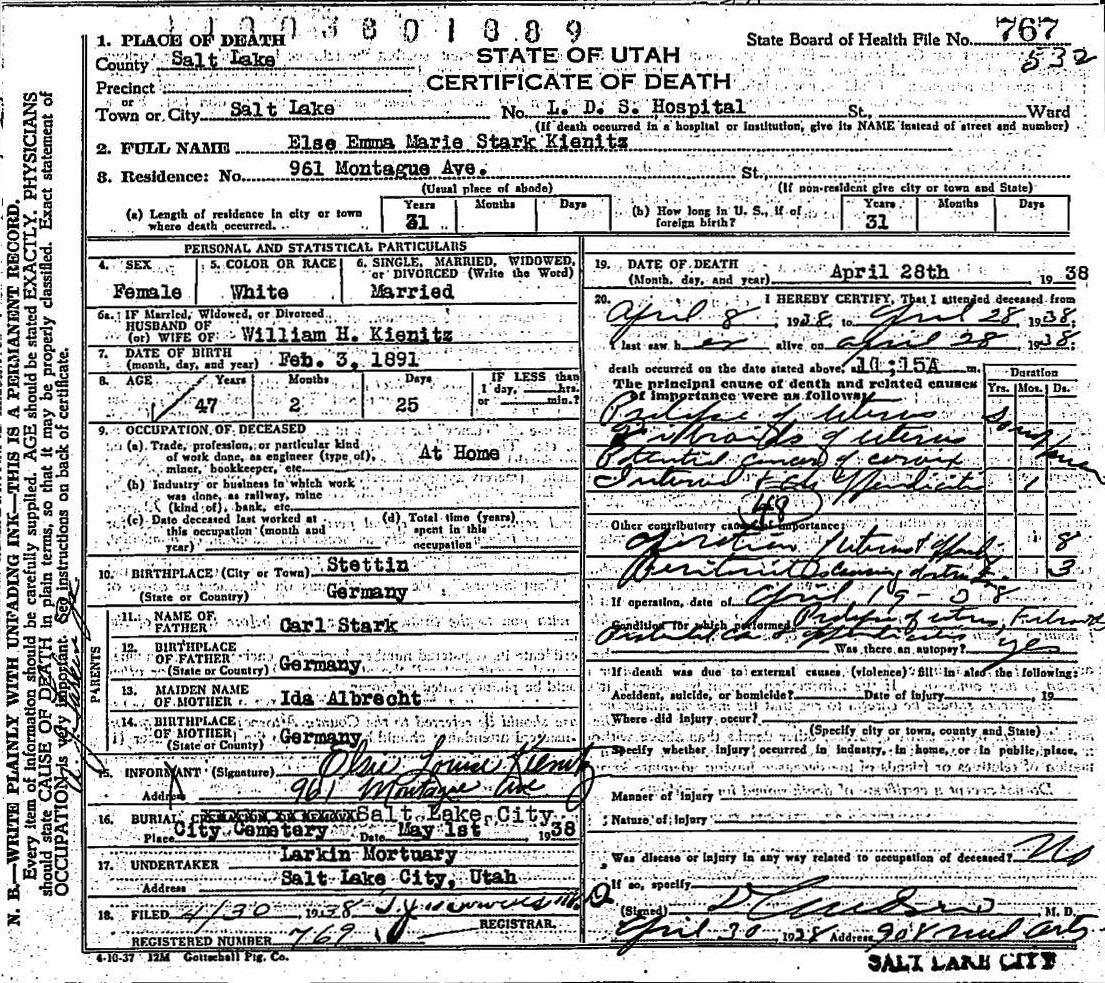 1 2 0 3 8 0 1 8 8 9
State Board of Health File No. 767
532
1. PLACE OF DEATH
County Salt Lake
STATE OF UTAH
CERTIFICATE OF DEATH
Precinct
or
Town or City Salt Lake No. L. D. S. Hospital St., Ward
(If death occurred in a hospital or institution, give its NAME instead of street and number)
2. FULL NAME Else Emma Marie Stark Kienitz
3. Residence: No. 961 Montague Ave. St.
(Usual place of abode) (If non-resident give city or town and State)
(a) Length of residence in city or town where death occurred. Years 31 Months Days
(b) How long in U. S., if of foreign birth? Years 31 Months Days
PERSONAL AND STATISTICAL PARTICULARS
4. SEX Female
5. COLOR OR RACE White
6. SINGLE, MARRIED, WIDOWED, or DIVORCED (Write the Word) Married
6a. IF Married, Widowed, or Divorced
HUSBAND OF
(or) WIFE OF William H. Kienitz
7. DATE OF BIRTH
(month, day, and year) Feb. 3, 1891
8. AGE Years 47 Months 2 Days 25 IF LESS than 1 day, hrs. or min.?
9. OCCUPATION OF DECEASED
(a) Trade, profession, or particular kind of work done, as engineer (type of), miner, bookkeeper, etc. At Home
(b) Industry or business in which work was done, as railway, mine (kind of), bank, etc.
(c) Date deceased last worked at this occupation (month and year)
(d) Total time (years) spent in this occupation
10. BIRTHPLACE (City or Town) Stettin
(State or Country) Germany
PARENTS
11. NAME OF FATHER Carl Stark
12. BIRTHPLACE OF FATHER (State or Country) Germany
13. MAIDEN NAME OF MOTHER Ida Albrecht
14. BIRTHPLACE OF MOTHER (State or County) Germany
15. INFORMANT (Signature) Elsie Louise Kienitz
Address 961 Montague Ave
16. BURIAL Salt Lake City
Place City Cemetery Date May 1st 1938
17. UNDERTAKER Larkin Mortuary
Address Salt Lake City, Utah
18. FILED 4/30 1938
REGISTRAR.
REGISTERED NUMBER 769
4-10-37 12M Gottschall Ptg. Co.
19. DATE OF DEATH
(Month, day, and year) April 28th 1938
20. I HEREBY CERTIFY, That I attended deceased from
April 8 1938, to April 28 1938;
I last saw her alive on April 28 1938;
death occurred on the date stated above, at 10:15A m.
The principal cause of death and related causes of importance were as follows:
Duration
Yrs. Mos. Ds.
Prolapse of uterus
Fibroids of uterus
Potential cancer of cervix
48
Other contributory causes of importance:
Operation 8
Peritonitis 3
If operation, date of April 19-38
Condition for which performed Prolapse of uterus, Fibroids
Was there an autopsy? yes
If death was due to external causes (violence) fill in also the following:
Accident, suicide, or homicide? Date of injury 19
Where did injury occur?
(Specify city or town, county and State)
Specify whether injury occurred in industry, in home, or in public place.
Manner of injury
Nature of injury
Was disease or injury in any way related to occupation of deceased? No
If so, specify
(Signed) M. D.
April 30 1938 Address 908 Med Arts
SALT LAKE CITY
N. B.—WRITE PLAINLY WITH UNFADING INK—THIS IS A PERMANENT RECORD.
Every item of information should be carefully supplied. AGE should be stated EXACTLY. PHYSICIANS
should state CAUSE OF DEATH in plain terms, so that it may be properly classified. Exact statement of
OCCUPATION is very important. See instructions on back of certificate.